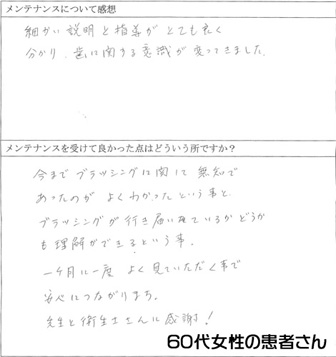 メンテナンスについて感想
細かい説明と指導がとても良く
分かり、歯に関する意識が変ってきました。
メンテナンスを受けて良かった点はどういう所ですか?
今までブラッシングに関して無知で
あったのが よくわかったという事と、
ブラッシングが行き届いているかどうか
も理解ができるという事。
一ヶ月に一度 よく見ていただく事で
安心につながります。
先生と衛生士さんに感謝!
60代女性の患者さん